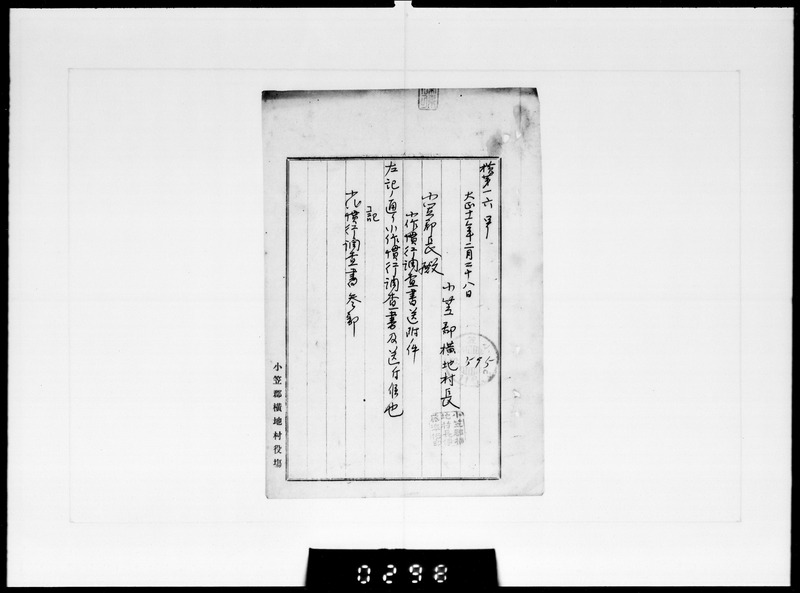 横第一六号
大正十一年二月二十八日
小笠郡横地村長
小笠郡長殿
小作慣行調査書送附件
左記ノ通リ小作慣行調査書及送付候也
記
小作慣行調査書 参部
小笠郡横地村役場
595
0298